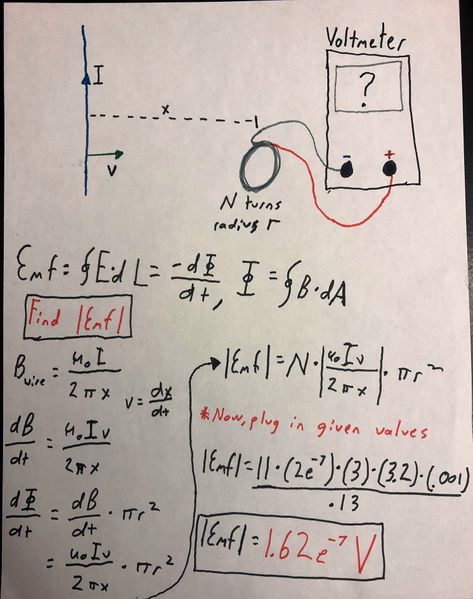 Voltmeter
I
x
?
v
- +
N turns
radius r
Emf = ∮E·dL = -dΦ/dt, Φ = ∮B·dA
Find |Emf|
B_wire = μ₀I/2πx
v = dx/dt
dB/dt = μ₀Iv/2πx
dΦ/dt = dB/dt · πr²
= μ₀Iv/2πx · πr²
|Emf| = N·|μ₀Iv/2πx|·πr²
*Now, plug in given values
|Emf| = 11·(2e⁻⁷)·(3)·(3.2)·(.001)/.13
|Emf| = 1.62e⁻⁷ V